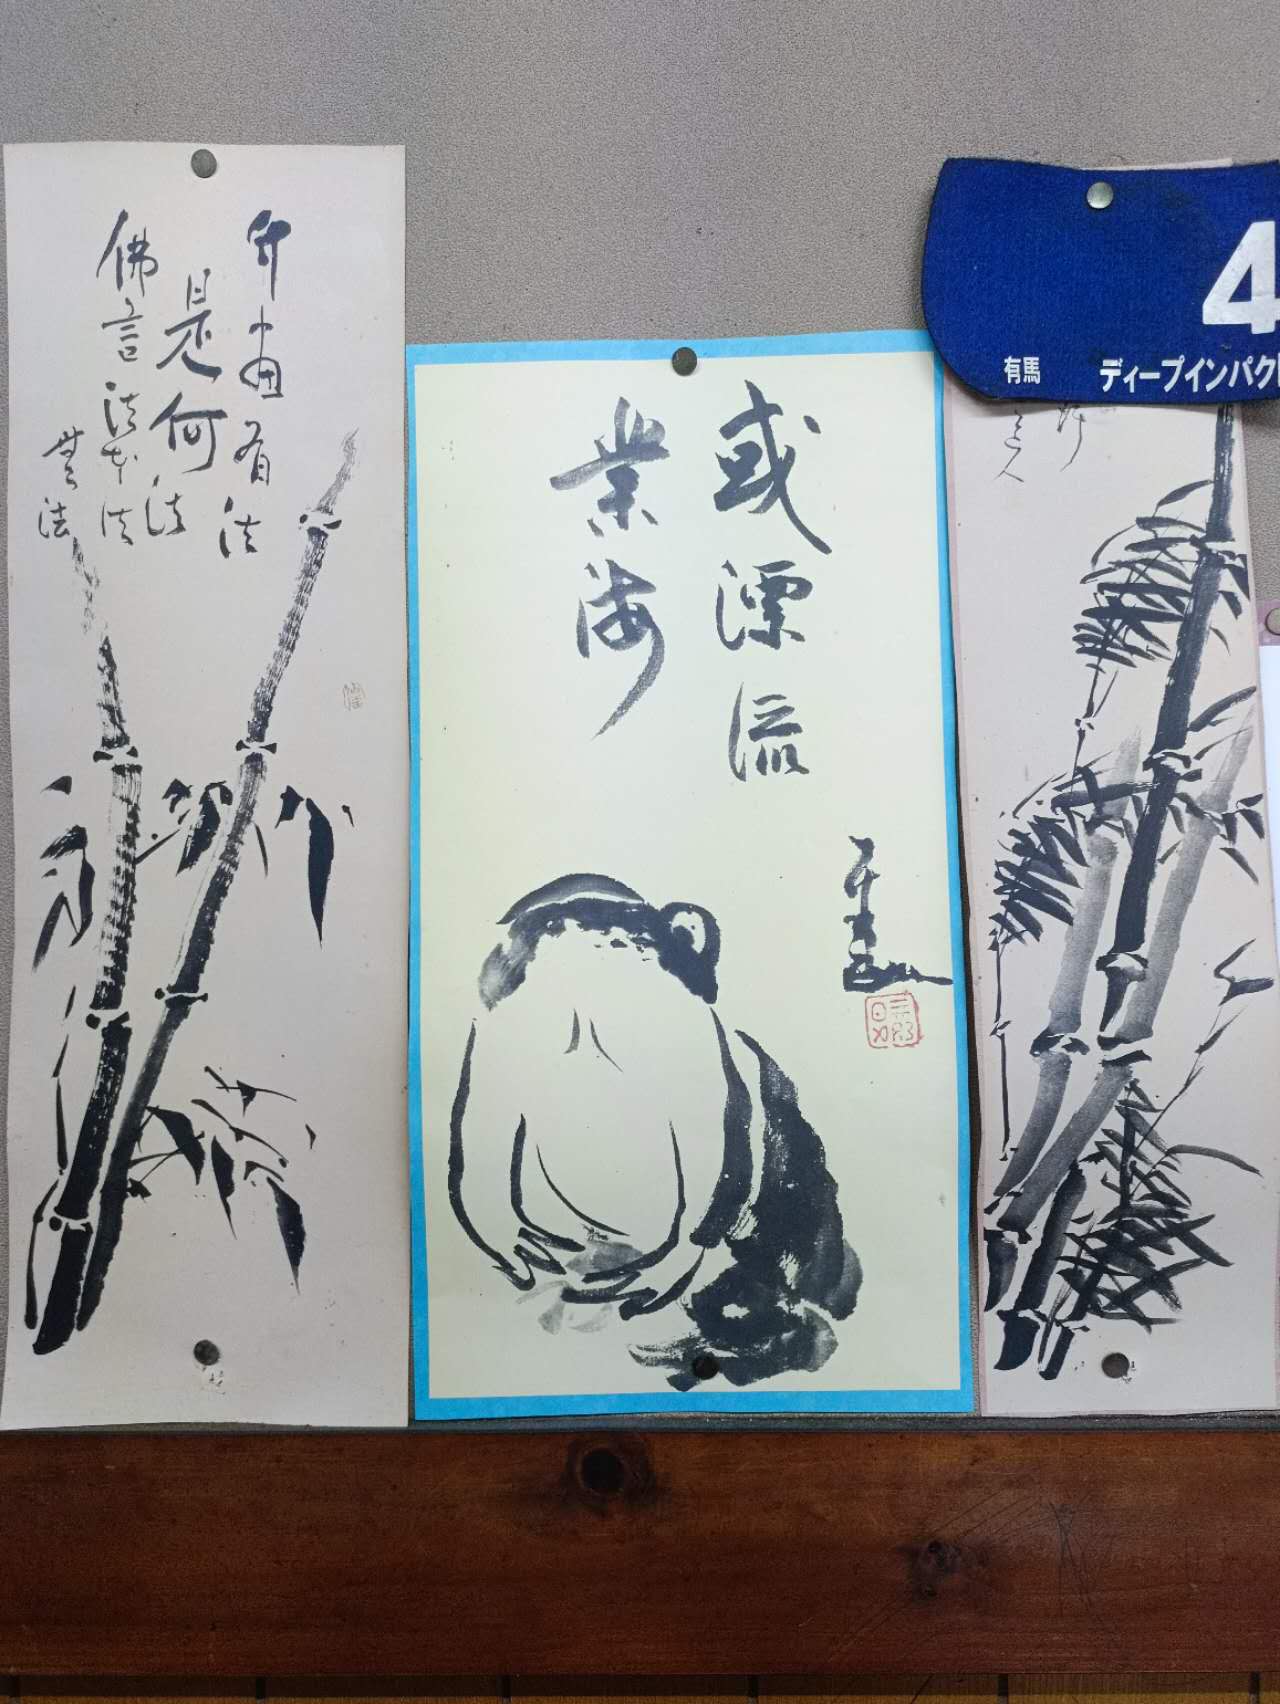 竹画有法
是何法
佛言法本法
無法
或漂流
業海
4
有馬 ディープインパクト